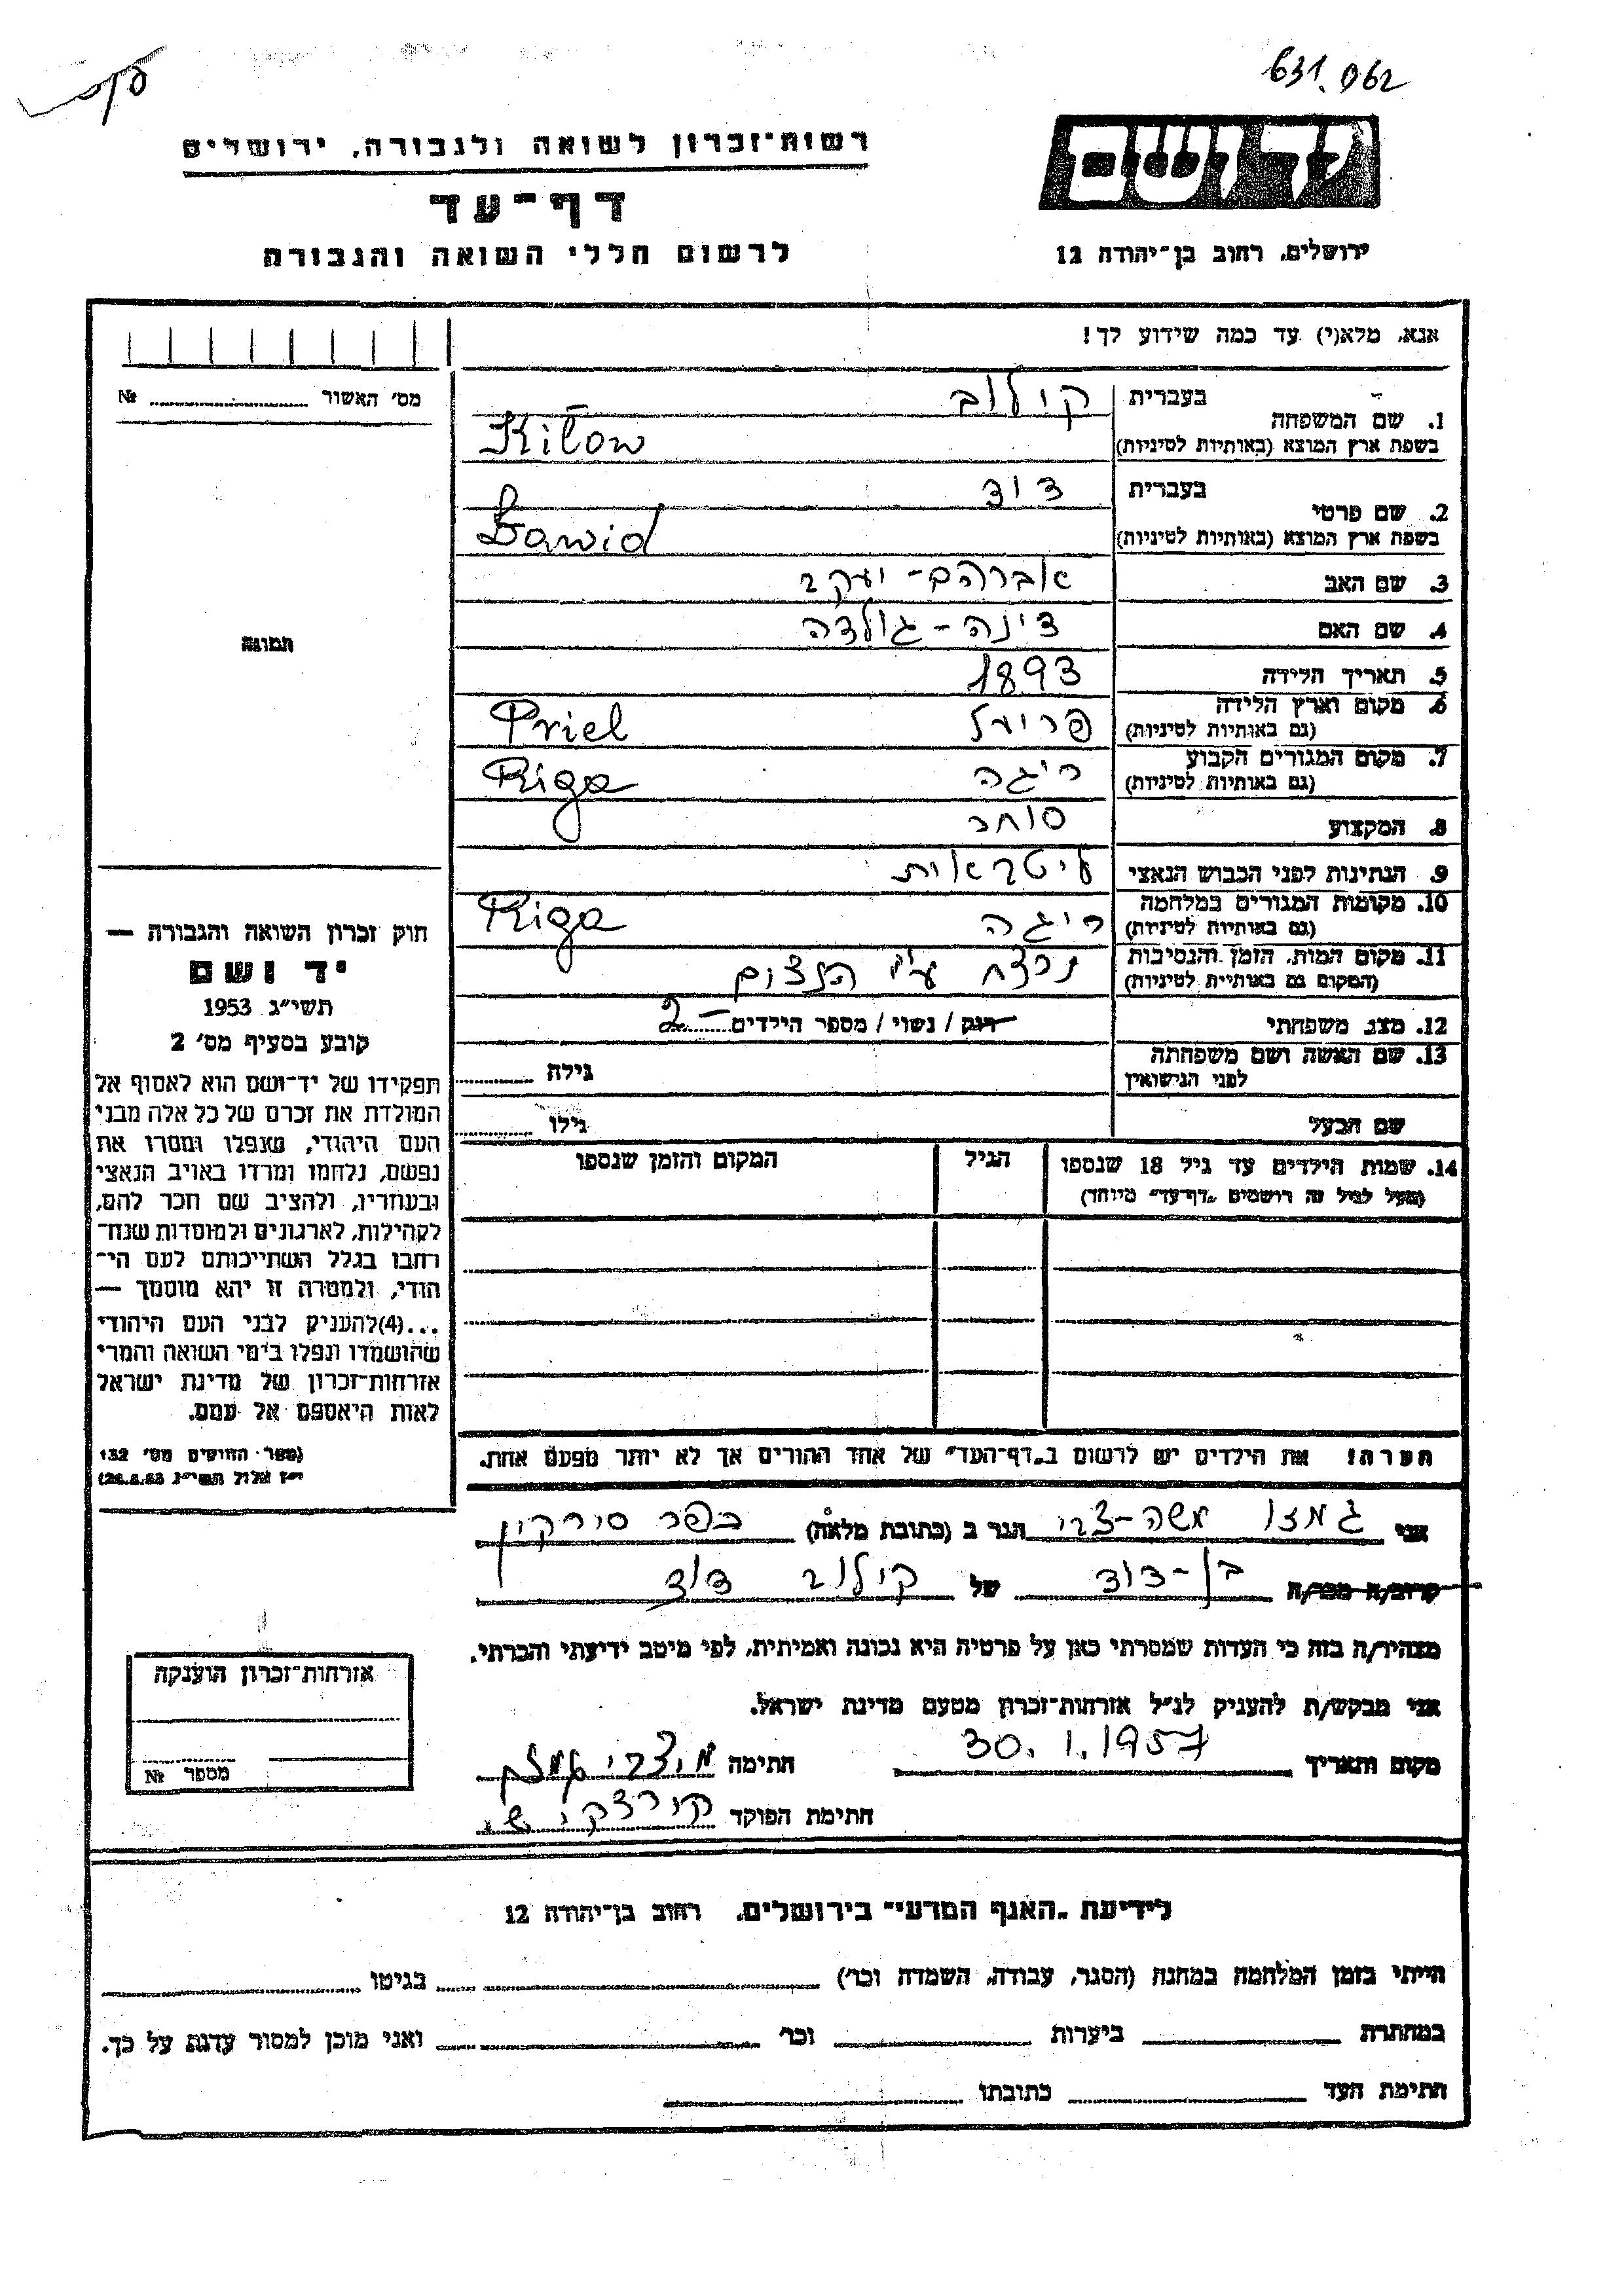 631.062
יד ושם
ירושלים, רחוב בן־יהודה 12
רשות־זכרון לשואה ולגבורה, ירושלים
דף־עד
לרשום חללי השואה והגבורה
אנא, מלא(י) עד כמה שידוע לך!
מס' האשור № 
1. שם המשפחה
בעברית קילוב
בשפת ארץ המוצא (באותיות לטיניות) Kilow
2. שם פרטי
בעברית דוד
בשפת ארץ המוצא (באותיות לטיניות) Dawid
3. שם האב אברהם-יעקב
4. שם האם דינה-גולדה
5. תאריך הלידה 1893
6. מקום וארץ הלידה פריאל Priel
(גם באותיות לטיניות)
7. מקום המגורים הקבוע ריגה Riga
(גם באותיות לטיניות)
8. המקצוע סוחר
9. הנתינות לפני הכבוש הנאצי
10. מקומות המגורים במלחמה ריגה Riga
(גם באותיות לטיניות)
11. מקום המות, הזמן והנסיבות נרצח ע"י
(המקום גם באותיות לטיניות)
12. מצב משפחתי רווק / נשוי / מספר הילדים 2-
13. שם האשה ושם משפחתה גילה
לפני הנישואין
שם הבעל גילו
14. שמות הילדים עד גיל 18 שנספו הגיל המקום והזמן שנספו
(מעל לגיל זה רושמים "דף־עד" מיוחד)
הערה! את הילדים יש לרשום ב"דף־העד" של אחד ההורים אך לא יותר מפעם אחת.
תמונה
חוק זכרון השואה והגבורה —
יד ושם
תשי"ג 1953
קובע בסעיף מס' 2
תפקידו של יד־ושם הוא לאסוף אל
המולדת את זכרם של כל אלה מבני
העם היהודי, שנפלו ומסרו את
נפשם, נלחמו ומרדו באויב הנאצי
ובעוזריו, ולהציב שם וזכר להם,
לקהילות, לארגונים ולמוסדות שנח־
רבו בגלל השתייכותם לעם הי־
הודי, ולמטרה זו יהא מוסמך —
...(4) להעניק לבני העם היהודי
שהושמדו ונפלו בימי השואה והמרי
אזרחות־זכרון של מדינת ישראל
לאות היאספם אל עמם.
(ספר החוקים מס' 132
י"ז אלול תשי"ג 28.8.53)
אני גמזו משה-צבי הגר ב (כתובת מלאה) כפר סירקין
קרוב/ה מכר/ה בן-דוד של קילוב דוד
מצהיר/ה בזה כי העדות שמסרתי כאן על פרטיה היא נכונה ואמיתית, לפי מיטב ידיעתי והכרתי.
אני מבקש/ת להעניק לנ"ל אזרחות־זכרון מטעם מדינת ישראל.
מקום ותאריך 30.1.1957 חתימה
חתימת הפוקד
אזרחות־זכרון הוענקה
מספר №
לידיעת "האגף המדעי" בירושלים, רחוב בן־יהודה 12
הייתי בזמן המלחמה במחנה (הסגר, עבודה, השמדה וכו') בגיטו
במחתרת ביערות וכו' ואני מוכן למסור עדות על כך.
חתימת העד כתובתו